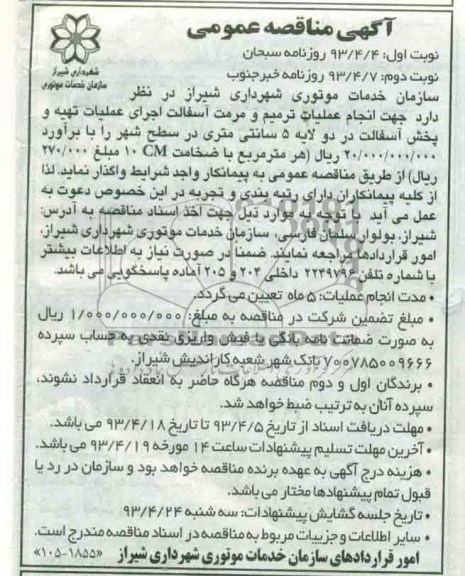 آگهی مناقصه عمومی
شهرداری شیراز
سازمان خدمات موتوری
نوبت اول: ۹۳/۴/۴ روزنامه سبحان
نوبت دوم: ۹۳/۴/۷ روزنامه خبرجنوب
سازمان خدمات موتوری شهرداری شیراز در نظر
دارد جهت انجام عملیات ترمیم و مرمت آسفالت اجرای عملیات تهیه و
پخش آسفالت در دو لایه ۵ سانتی متری در سطح شهر را با برآورد
۲۰/۰۰۰/۰۰۰/۰۰۰ ریال (هر مترمربع با ضخامت ۱۰ CM مبلغ ۲۷۰/۰۰۰
ریال) از طریق مناقصه عمومی به پیمانکار واجد شرایط واگذار نماید. لذا
از کلیه پیمانکاران دارای رتبه بندی و تجربه در این خصوص دعوت به
عمل می آید با توجه به موارد ذیل جهت اخذ اسناد مناقصه به آدرس:
شیراز، بولوار سلمان فارسی، سازمان خدمات موتوری شهرداری شیراز،
امور قراردادها مراجعه نمایند. ضمنا در صورت نیاز به اطلاعات بیشتر
با شماره تلفن ۲۲۴۹۷۹۶ داخلی ۲۰۴ و ۲۰۵ آماده پاسخگویی می باشد.
• مدت انجام عملیات: ۵ ماه تعیین می گردد.
• مبلغ تضمین شرکت در مناقصه به مبلغ: ۱/۰۰۰/۰۰۰/۰۰۰ ریال
به صورت ضمانت نامه بانکی یا فیش واریزی نقدی به حساب سپرده
۷۰۰۷۸۵۰۰۹۶۶۶ بانک شهر شعبه کاراندیش شیراز.
• برندگان اول و دوم مناقصه هرگاه حاضر به انعقاد قرارداد نشوند،
سپرده آنان به ترتیب ضبط خواهد شد.
• مهلت دریافت اسناد از تاریخ ۹۳/۴/۵ تا تاریخ ۹۳/۴/۱۸ می باشد.
• آخرین مهلت تسلیم پیشنهادات ساعت ۱۴ مورخه ۹۳/۴/۱۹ می باشد.
• هزینه درج آگهی به عهده برنده مناقصه خواهد بود و سازمان در رد یا
قبول تمام پیشنهادها مختار می باشد.
• تاریخ جلسه گشایش پیشنهادات: سه شنبه ۹۳/۴/۲۴
• سایر اطلاعات و جزییات مربوط به مناقصه در اسناد مناقصه مندرج است.
امور قراردادهای سازمان خدمات موتوری شهرداری شیراز «۱۸۵۵-۱۰۵»